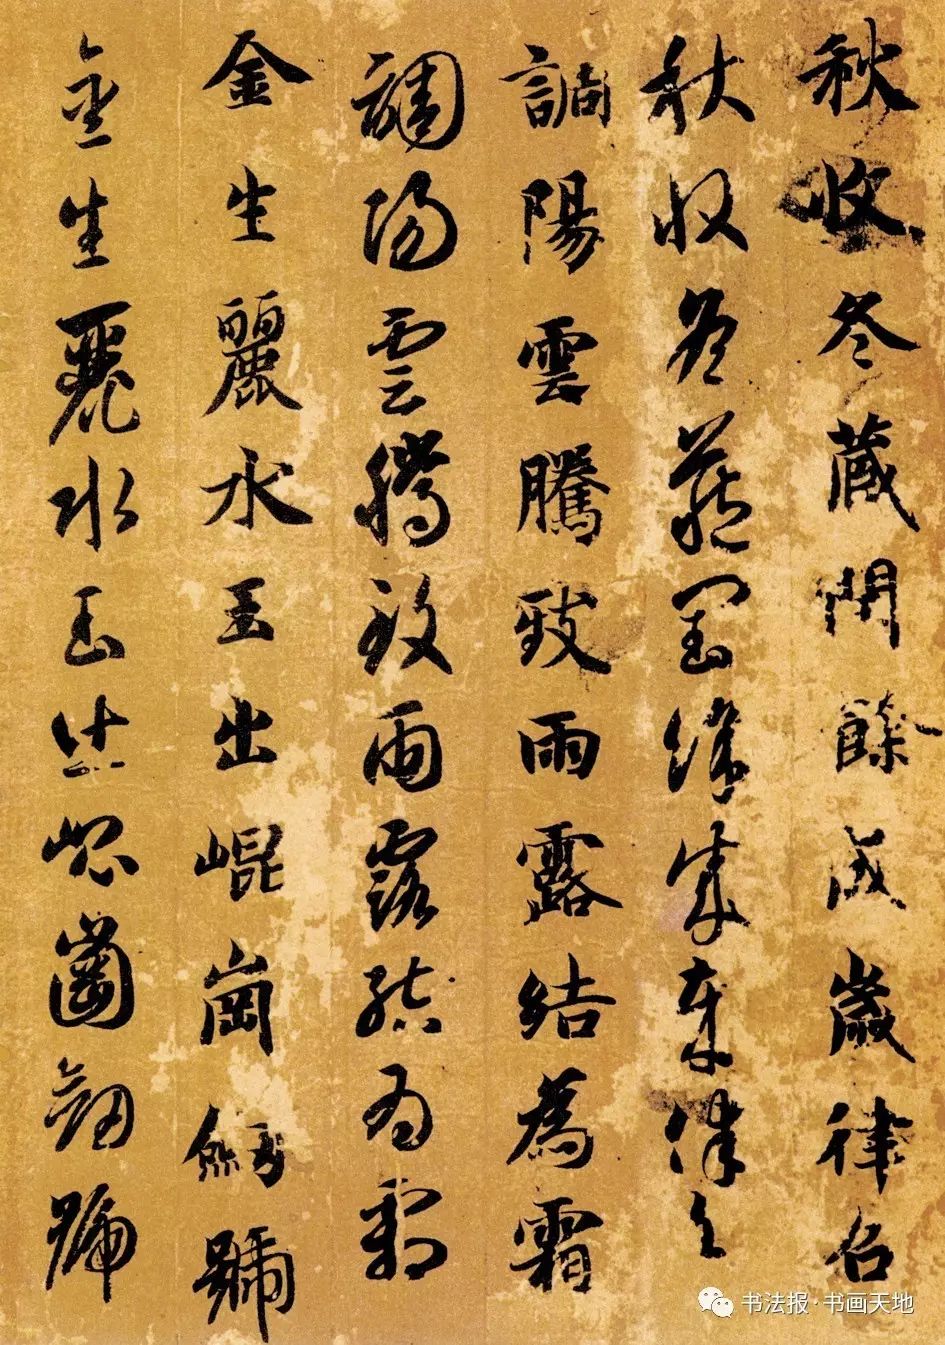 秋收冬藏閏餘成歲律召
秋收冬藏閏餘成歲律召
調陽雲騰致雨露結為霜
調陽雲騰致雨露結為霜
金生麗水玉出崐崗劒號
金生麗水玉出崐崗劒號
书法报·书画天地